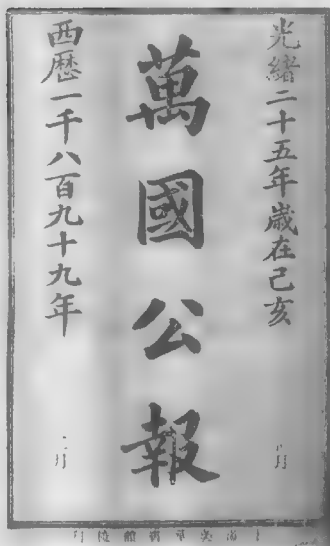 光緒二十五年歲在己亥
月
萬國公報
西歷一千八百九十九年
月